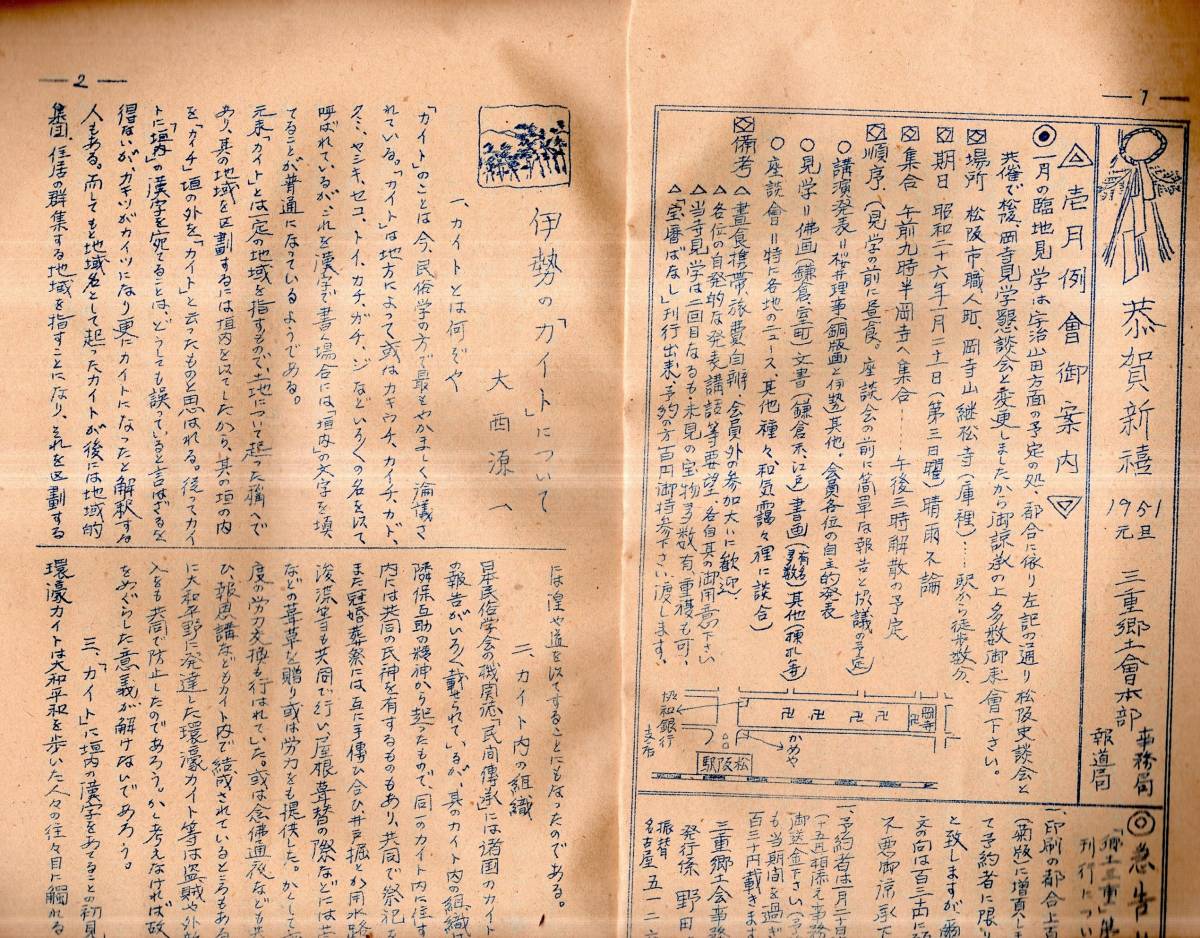 — 1 —
恭賀新禧 1951 元旦 三重郷土會本部 事務局 報道局
△ 壱月例會御案内 ▽
◉ 一月の臨地見学は宇治山田方面の予定の処、都合に依り左記の通り松阪史談会と
共催で松阪、岡寺見学懇談会と変更しましたから御諒承の上多数御来會下さい。
場所 松阪市職人町、岡寺山継松寺(庫裡)……駅から徒歩数分、
期日 昭和二十六年一月二十一日(第三日曜)晴雨不論
集合 午前九時半岡寺へ集合……午後三時解散の予定
順序、(見学の前に昼食。座談会の前に簡単な報告と協議の予定)
○ 講演発表=桜井理事(銅版画と伊勢)其他。会員各位の自主的発表
○ 見学=佛画(鎌倉室町)文書(鎌倉 江戸)書画(有名多数)其他
○ 座談會=特に各地のニュース、其他種々和気靄々裡に談合)
備考 △晝食携帯、旅費自辨、会員外の参加大いに歓迎、
△各位の自発的な発表講話等要望、各自其の御用意下さい
△当寺見学は二回目なるも未見の宝物多数有、重複も可、
△「宝暦ばなし」刊行出来、予約の方百円御持参下さい渡します。
協和銀行支店
かめや
岡寺
松阪駅
◎急告
「郷土三重」
刊行につい
一、印刷の都合上頁
(菊版)に増頁しま
て予約者に限り
と致しますが爾
文の向は百三十
不悪御諒承下
一、予約者は一月二十
御送金下さい(予
も当期間を過ぎ
百三十円載きます
三重郷土会事務
発行係 野田
振替
名古屋 五一二六
— 2 —
伊勢の「カイト」について
大西源一
一、カイトとは何ぞや
「カイト」のことは今、民俗学の方で最もやかましく論議さ
れている。「カイト」は地方によって或はカキウチ、カイチ、カド、
クミ、ヤシキ、セコ、トイ、カチ、ガチ、ジなどいろくの名を以て
呼ばれているが、これを漢字で書く場合には「垣内」の文字を填
てることが普通になっているようである。
元来「カイト」とは一定の地域を指すもので、土地について起った稱へで
あり、其の地域を区劃するには垣内を以てしたから、其の垣の内
を「カイチ」垣の外を「カイト」と云ったものと思はれる。従ってカイ
トに「垣内」の漢字を宛てることは、どうしても誤っていると言はざるを
得ないがカキツがカイツになり更にカイトになったと解釈する
人もある。而してもと地域名として起ったカイトが後には地域的
集団、住居の群集する地域を指すことになり、それを区劃する
には湟や道を以てすることにもなったのである。
二、カイト内の組織
日本民俗学会の機関誌「民間傳承」には諸国のカイト
の報告がいろく載せられているが、其のカイト内の組織は
隣保互助の精神から起ったもので、同一のカイト内に住す
内には共同の氏神を有するものもあり、共同で祭祀を
また冠婚葬祭には互に手傳ひ合ひ井戸掘とか用水路
浚渫等も共同で行い、屋根葺替の際などには茅
などの葺草を贈り或は労力をも提供した。かくして
度の労力交換も行はれていた。或は念佛通夜なども共
ひ、報恩講などもカイト内で結成されているところもある
に大和平野に発達した環濠カイト等は盗賊や外敵
入をも共同で防止したのであろう。かく考えなければ故
をめぐらした意義が解けないであろう。
三、「カイト」に垣内の漢字をあてることの初見
環濠カイトは大和平和を歩いた人々の往々目に觸れる